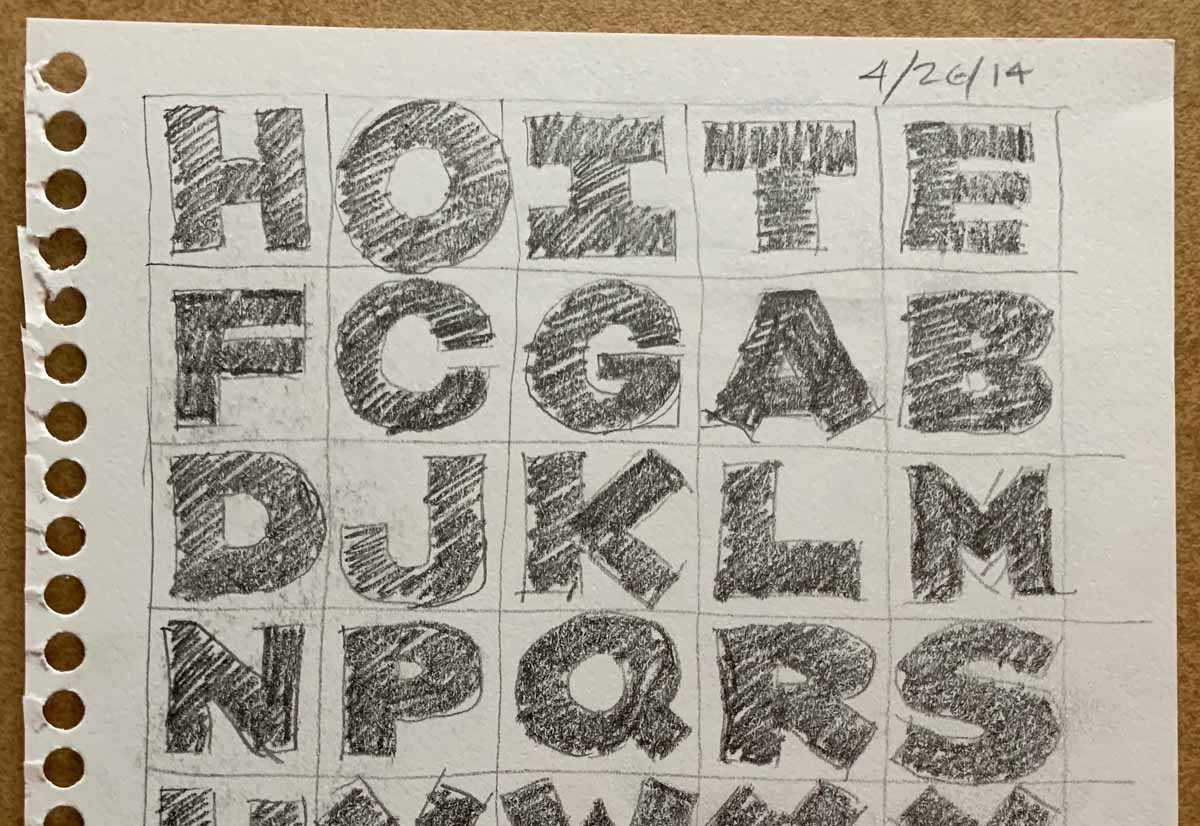 4/26/14
H O I T E
F C G A B
D J K L M
N P Q R S